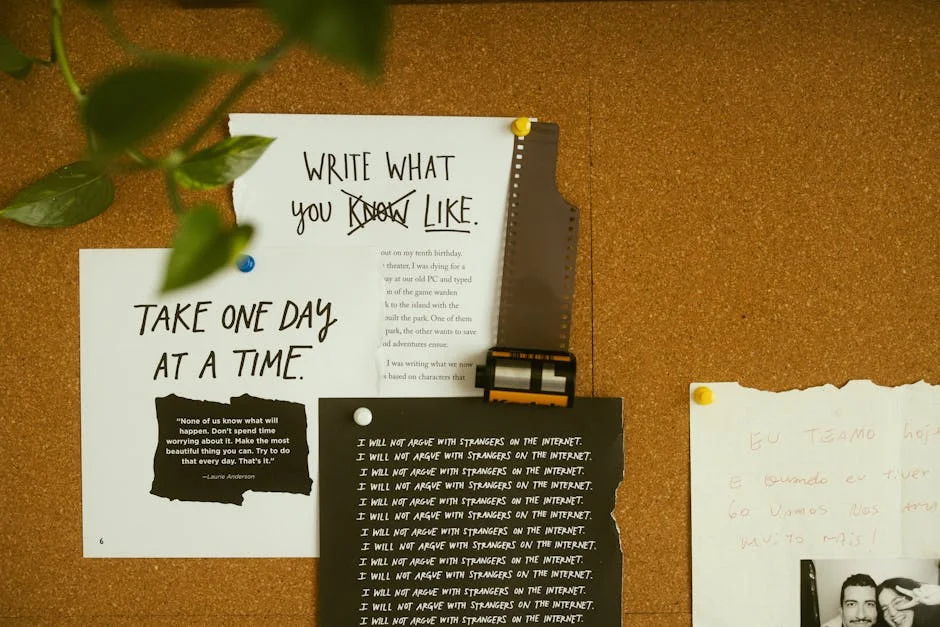 WRITE WHAT
YOU KNOW LIKE.
out on my tenth birthday.
theater, I was dying for a
ay at our old PC and typed
n of the game warden
k to the island with the
uilt the park. One of them
park, the other wants to save
nd adventures ensue.
I was writing what we now
s based on characters that
TAKE ONE DAY
AT A TIME.
“None of us know what will
happen. Don’t spend time
worrying about it. Make the most
beautiful thing you can. Try to do
that every day. That’s it.”
—Laurie Anderson
6
I WILL NOT ARGUE WITH STRANGERS ON THE INTERNET.
I WILL NOT ARGUE WITH STRANGERS ON THE INTERNET.
I WILL NOT ARGUE WITH STRANGERS ON THE INTERNET.
I WILL NOT ARGUE WITH STRANGERS ON THE INTERNET.
I WILL NOT ARGUE WITH STRANGERS ON THE INTERNET.
I WILL NOT ARGUE WITH STRANGERS ON THE INTERNET.
I WILL NOT ARGUE WITH STRANGERS ON THE INTERNET.
I WILL NOT ARGUE WITH STRANGERS ON THE INTERNET.
I WILL NOT ARGUE WITH STRANGERS ON THE INTERNET.
I WILL NOT ARGUE WITH STRANGERS ON THE INTERNET.
I WILL NOT ARGUE WITH STRANGERS ON THE INTERNET.
I WILL NOT ARGUE WITH STRANGERS ON THE INTERNET.
I WILL NOT ARGUE WITH STRANGERS ON THE INTERNET.
EU TEAMO hoje
E Quando eu tiver
60 Vamos NOS
MUITO MAIS!